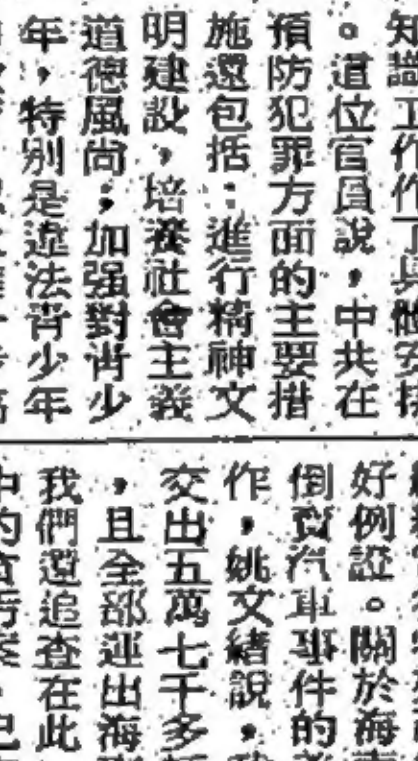 知識工作作了具體安排
。這位官員說，中共在
預防犯罪方面的主要措
施還包括：進行精神文
明建設，培養社會主義
道德風尚，加强對青少
年，特別是違法青少年
好例證。關於海南
倒賣汽車事件的
作，姚文緒說，
交出五萬七千多
，且全部運出海
我們還追查在此